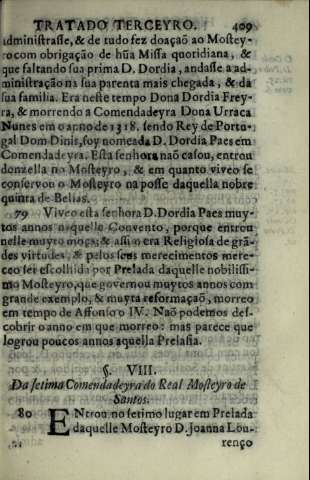 TRATADO TERCEYRO. 409
administrasse, & de tudo fez doaçaõ ao Mostey-
ro com obrigação de hũa Missa quotidiana, &
que faltando sua prima D. Dordia, andasse a ad-
ministração na sua parenta mais chegada, & da
sua familia. Era neste tempo Dona Dordia Frey-
ra, & morrendo a Comendadeyra Dona Urraca
Nunes em o anno de 1318. sendo Rey de Portu-
gal Dom Dinis, foy nomeada D. Dordia Paes em
Comendadeyra. Esta senhora naõ casou, entrou
donzella no Mosteyro, & em quanto viveo se
conservou o Mosteyro na posse daquella nobre
quinta de Bellas.
79 Viveo esta senhora D. Dordia Paes muy-
tos annos naquelle Convento, porque entrou
nelle muyto moça; & assi nera Religiosa de grã-
des virtudes, & pelos seus merecimentos mere-
ceo ser escolhida por Prelada daquelle nobilissi-
mo Mosteyro, que governou muytos annos com
grande exemplo, & muyta reformaçaõ, morreo
em tempo de Affonso o IV. Naõ podemos des-
cobrir o anno em que morreo: mas parece que
logrou poucos annos aquella Prelasia.
§. VIII.
Da setima Comendadeyra do Real Mosteyro de
Santos.
80 ENtrou no setimo lugar em Prelada
daquelle Mosteyro D. Joanna Lou-
renço